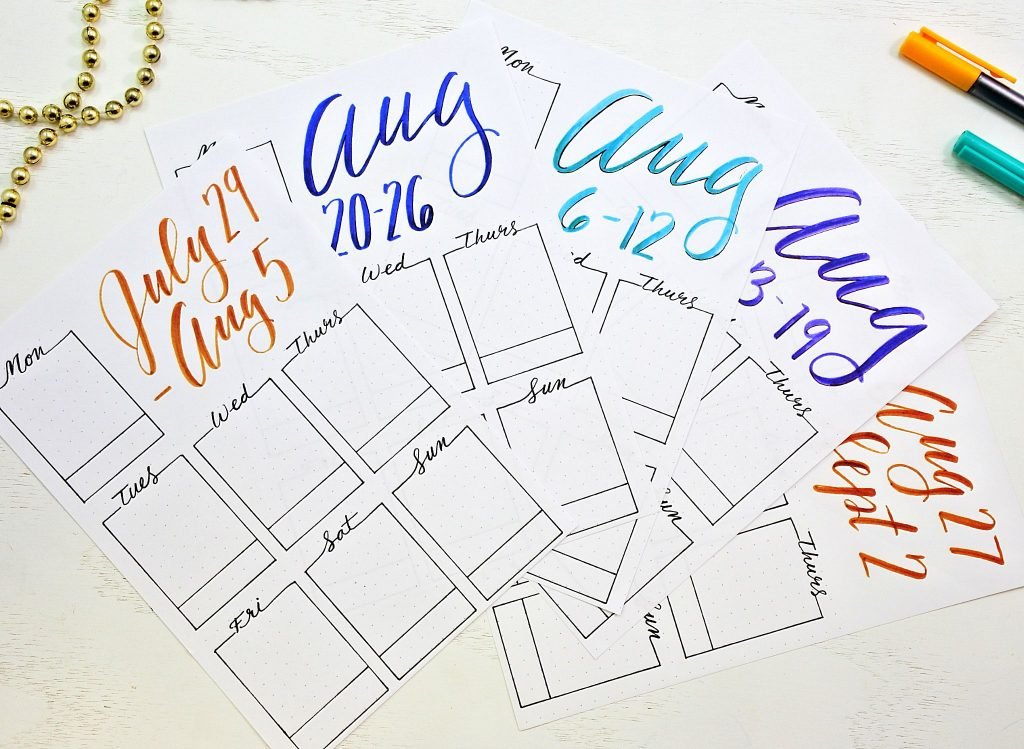 July 29
- Aug 5
Mon
Tues
Wed
Thurs
Fri
Sat
Sun
Aug
20-26
Wed
Thurs
Sun
Mon
Aug
6-12
Thurs
Aug
3-19
Thurs
Aug 27
ept 2
Thurs